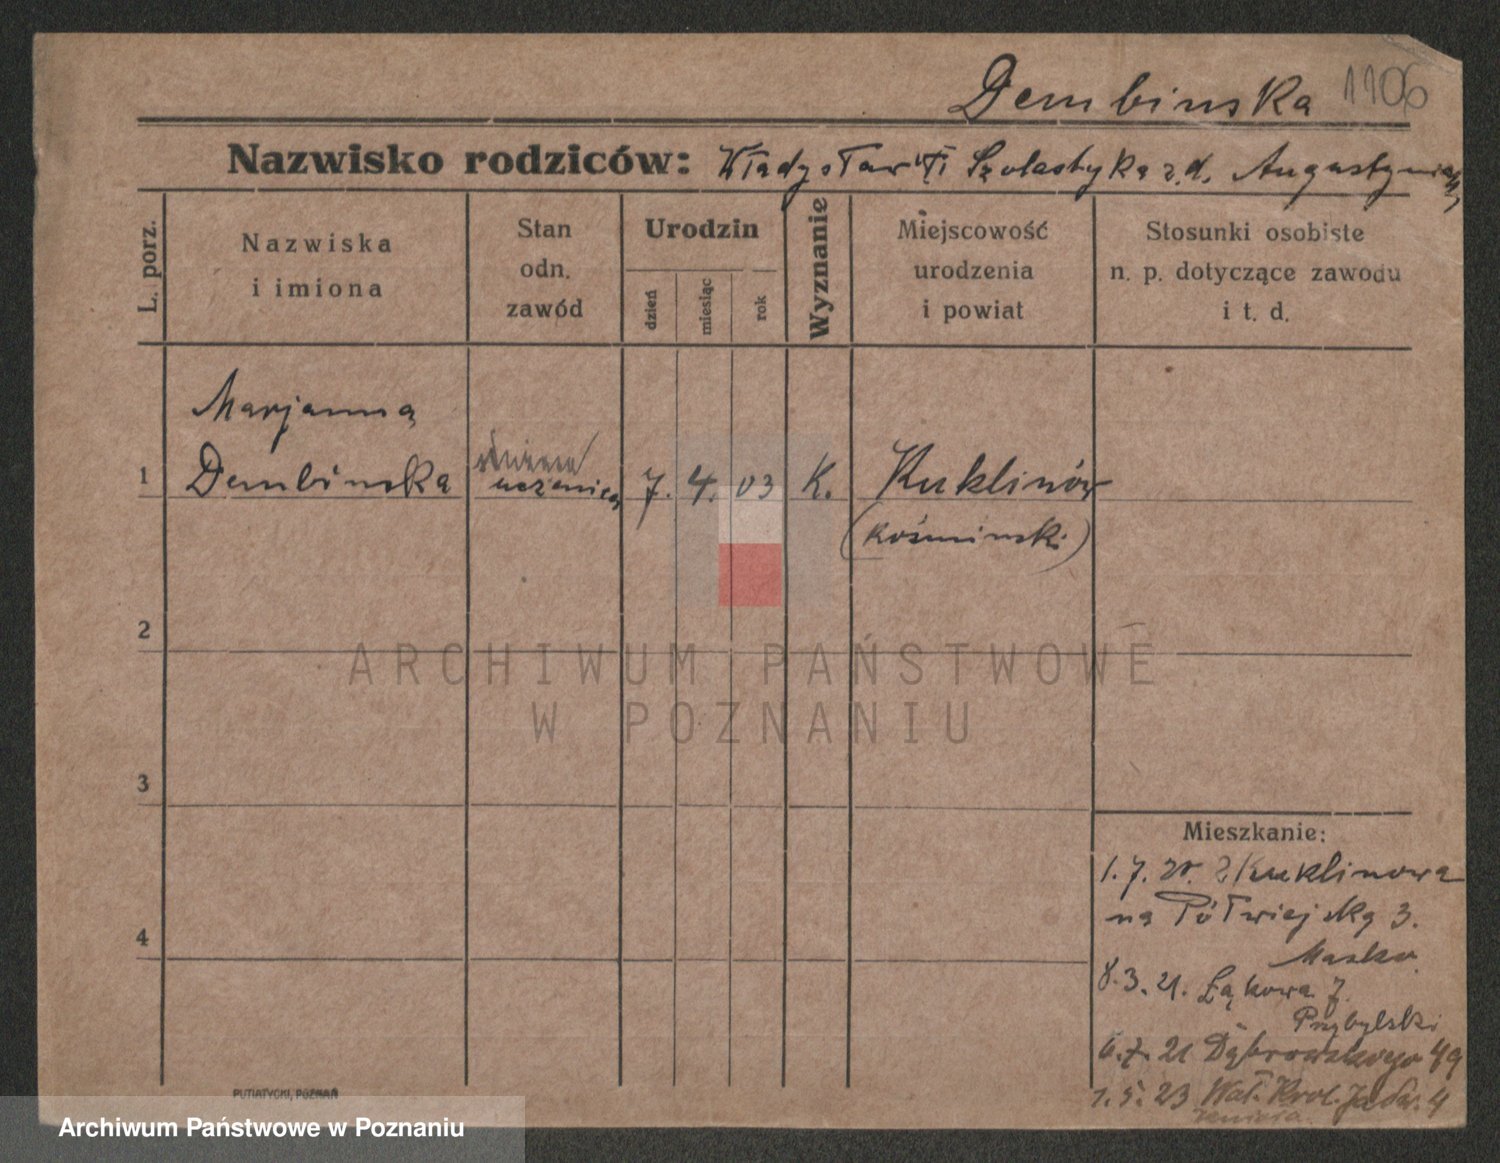 Dembinska 1106
Nazwisko rodziców: Władysław Szolastyka z.d. Augustyniak
L. porz.
Nazwiska
i imiona
Stan
odn.
zawód
Urodzin
dzień
miesiąc
rok
Wyznanie
Miejscowość
urodzenia
i powiat
Stosunki osobiste
n. p. dotyczące zawodu
i t. d.
Marjanna
1 Dembinska uczenica 7. 4. 03 K. Kuklinów
(kośminski)
2
3
4
Mieszkanie:
1.7.20. z Kuklinowa
na Półwiejską 3.
8.3.21. Łąkowa 7.
Przybylski
6.7.21 Dąbrowskiego 49
1.5.23 Wał. Krol. Jadw. 4
PUTIATYCKI, POZNAŃ
ARCHIWUM PAŃSTWOWE
W POZNANIU
Archiwum Państwowe w Poznaniu